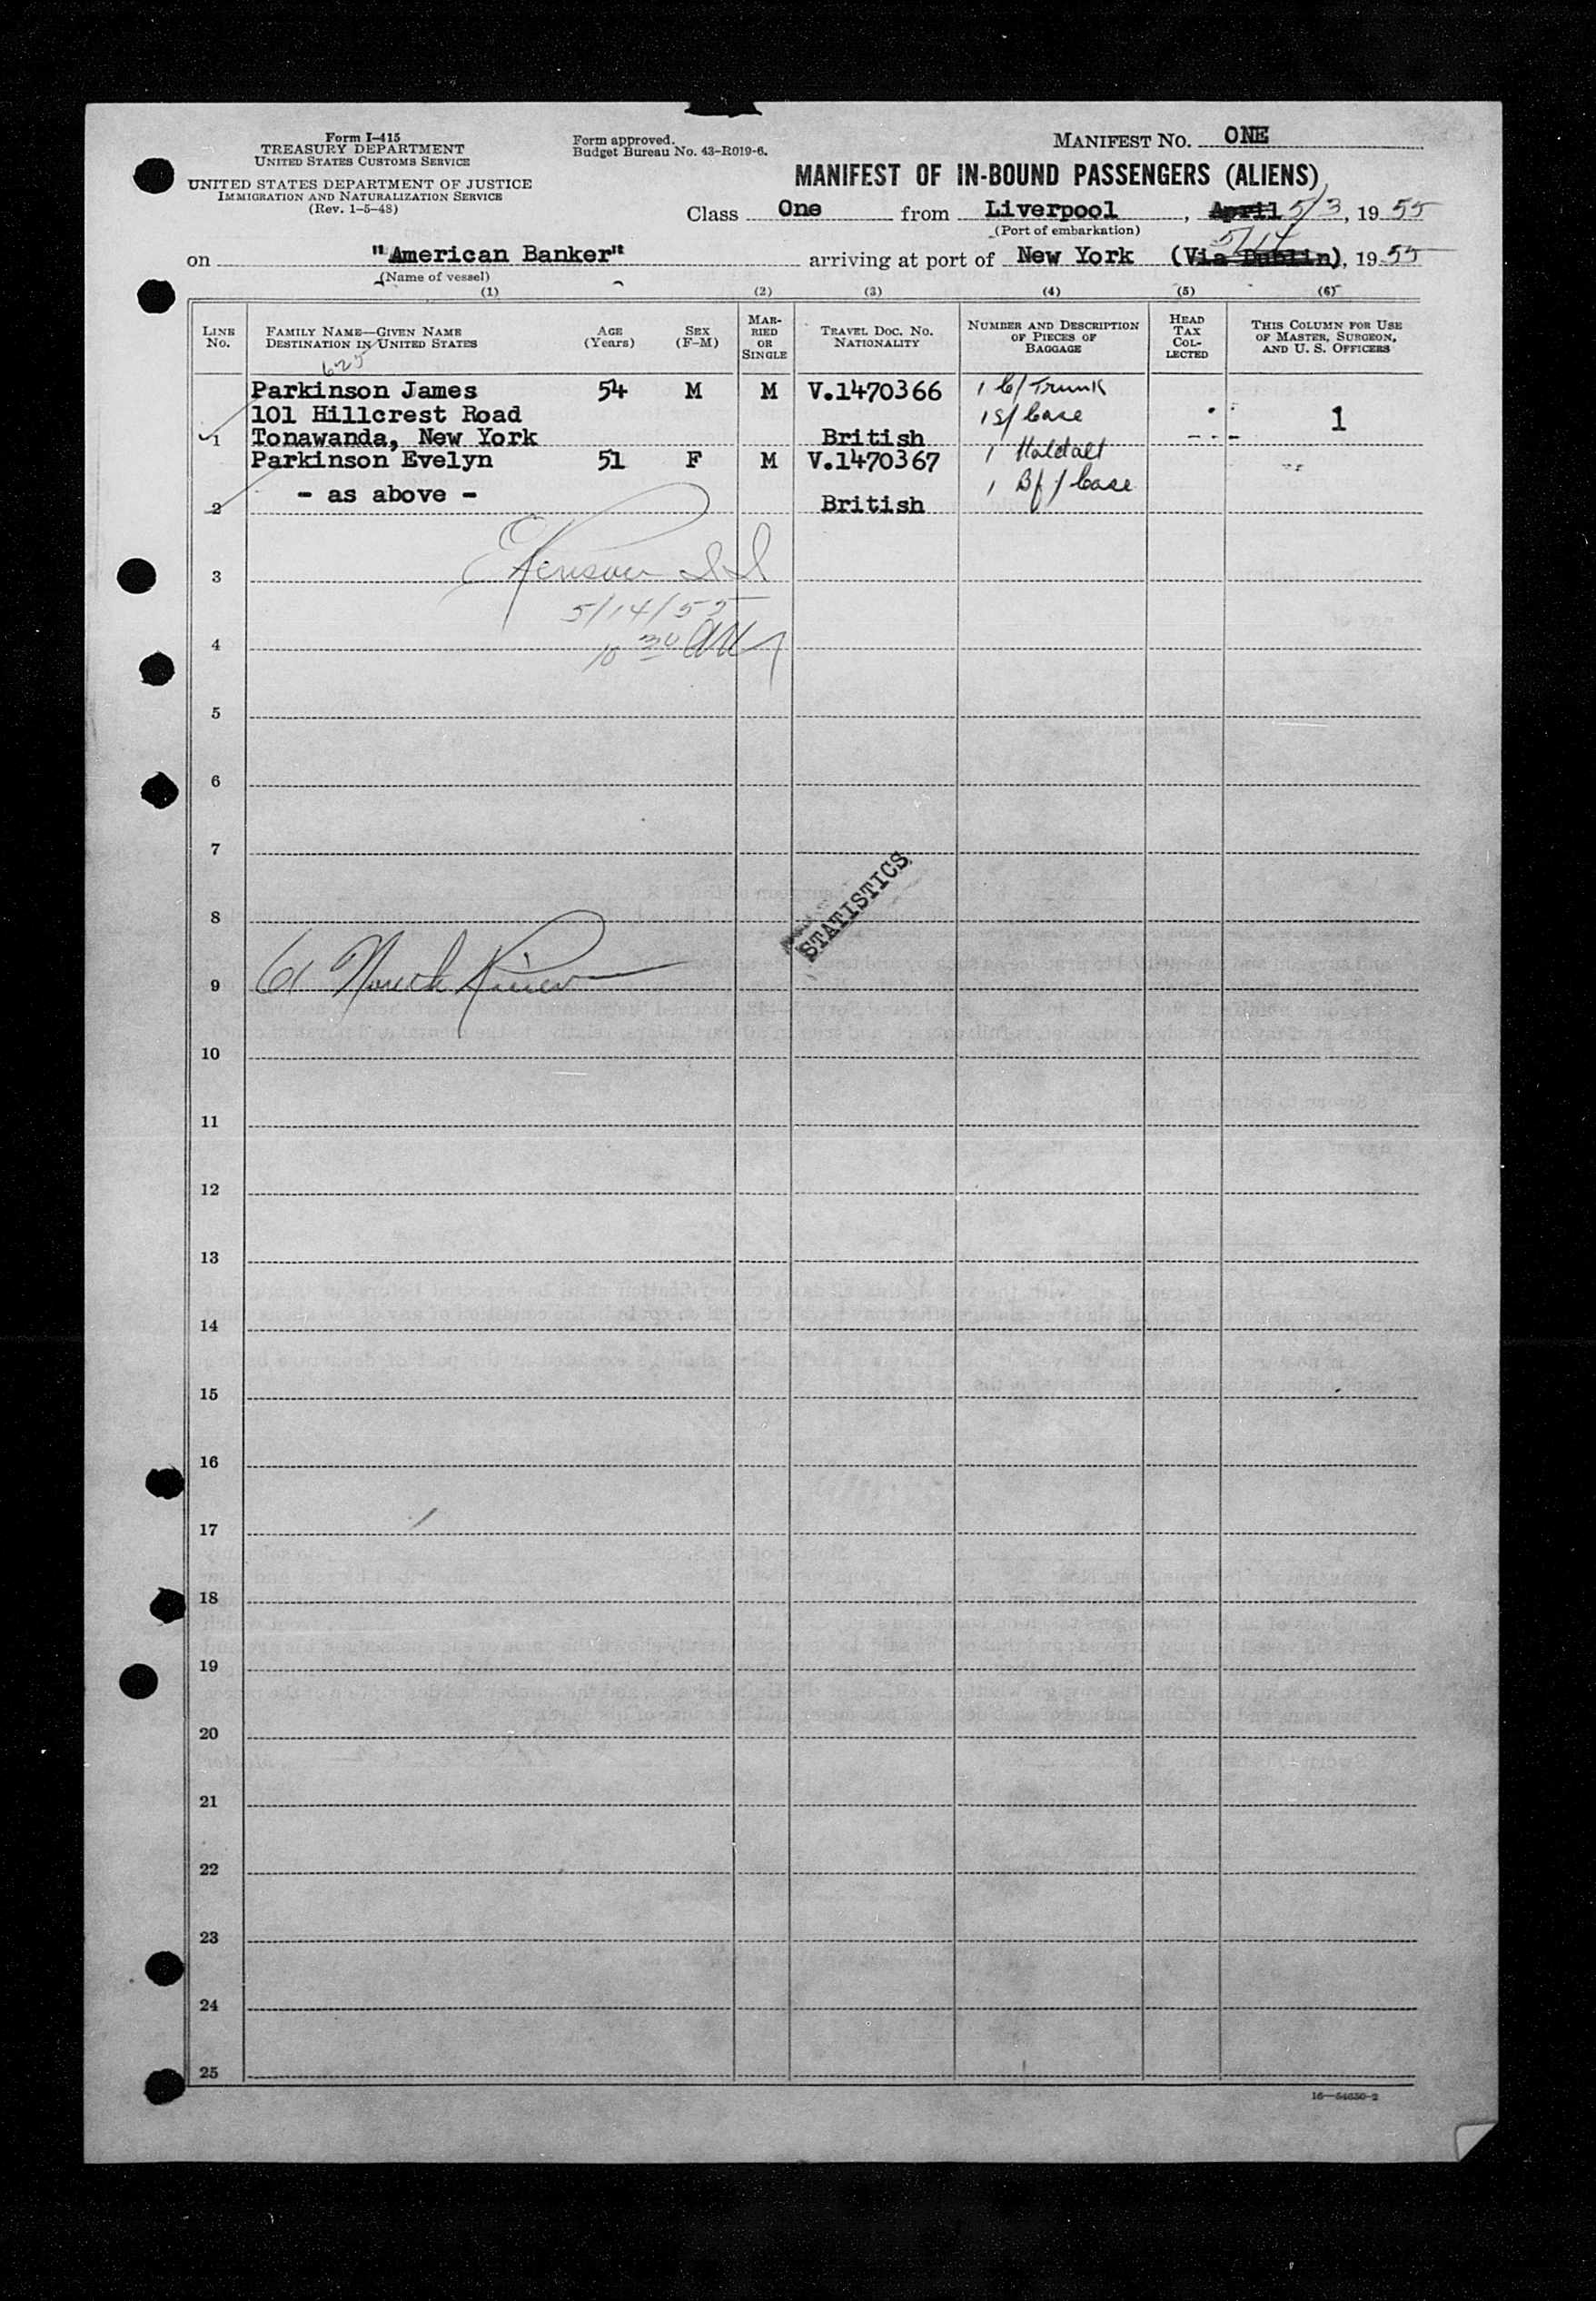 Form I-415
TREASURY DEPARTMENT
UNITED STATES CUSTOMS SERVICE
UNITED STATES DEPARTMENT OF JUSTICE
IMMIGRATION AND NATURALIZATION SERVICE
(Rev. 1-5-48)
Form approved.
Budget Bureau No. 43-R019-6.
MANIFEST NO. ONE
MANIFEST OF IN-BOUND PASSENGERS (ALIENS)
Class One from Liverpool, April 5/3, 1955
(Port of embarkation)
5/14
on "American Banker" arriving at port of New York (Via Dublin), 1955
(Name of vessel)
(1) (2) (3) (4) (5) (6)
LINE No. FAMILY NAME—GIVEN NAME DESTINATION IN UNITED STATES AGE (Years) SEX (F-M) MARRIED OR SINGLE TRAVEL DOC. NO. NATIONALITY NUMBER AND DESCRIPTION OF PIECES OF BAGGAGE HEAD TAX COLLECTED THIS COLUMN FOR USE OF MASTER, SURGEON, AND U. S. OFFICERS
625
Parkinson James 54 M M V.1470366 1 C/Trunk
101 Hillcrest Road 1 S/Case 1
1 Tonawanda, New York British
Parkinson Evelyn 51 F M V.1470367 1 Holdalt
- as above - 1 Bf/Case
2 British
3
5/14/55
4 10 30 AM
5
6
7
STATISTICS
8
9 61 North River
10
11
12
13
14
15
16
17
18
19
20
21
22
23
24
25
16—54650-2